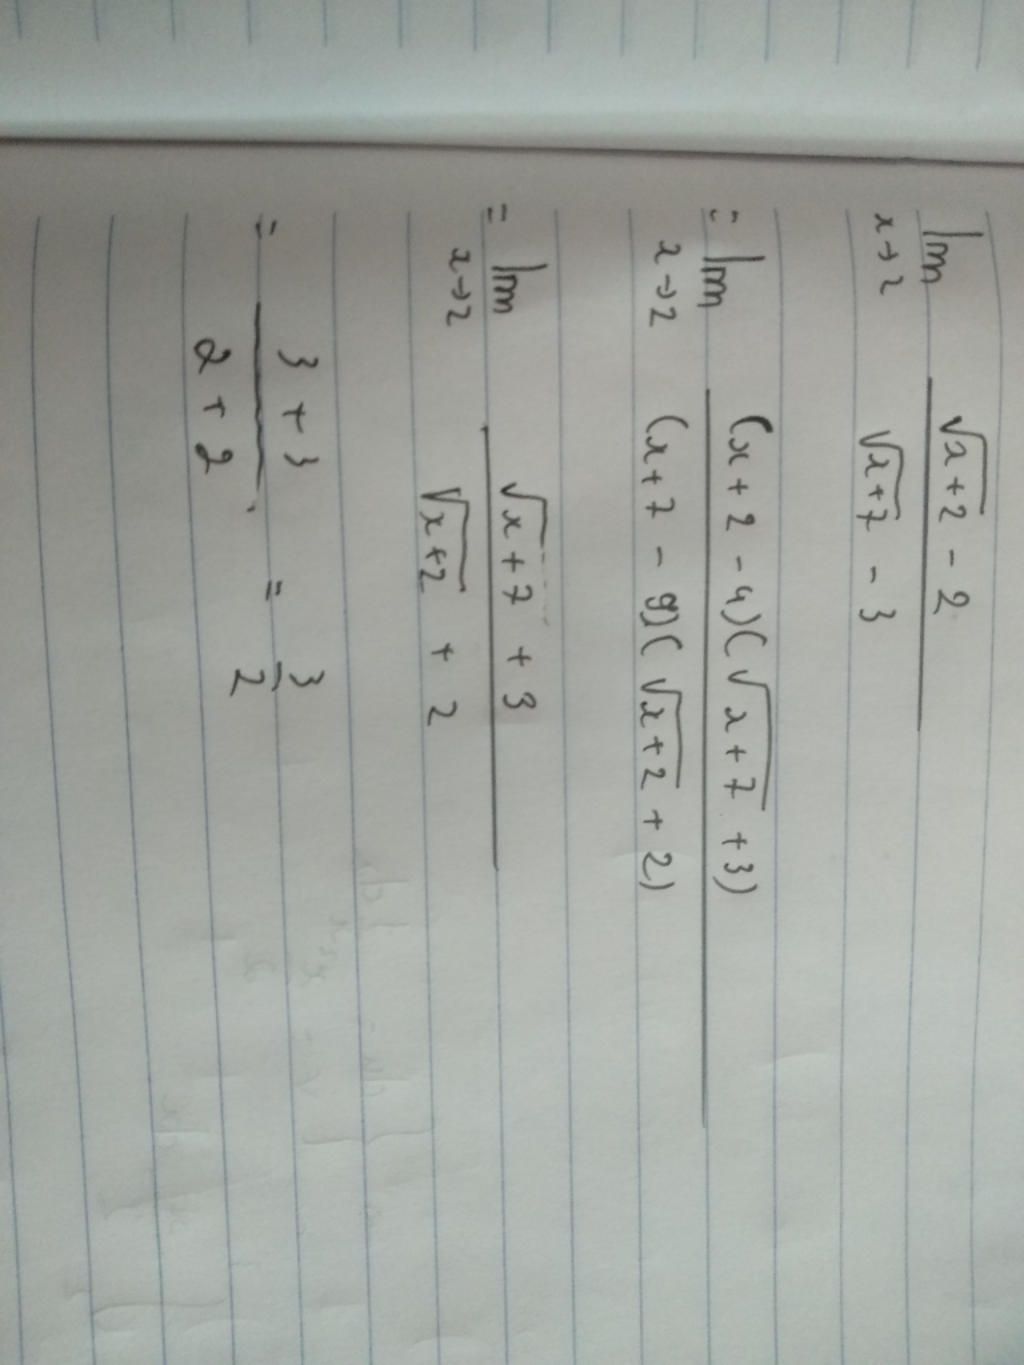 lim x→2 (√(x+2) - 2)/(√(x+7) - 3)
= lim x→2 ((x+2-4)(√(x+7) +3))/((x+7-9)(√(x+2) +2))
= lim x→2 (√(x+7) + 3)/(√(x+2) + 2)
= (3+3)/(2+2) = 3/2